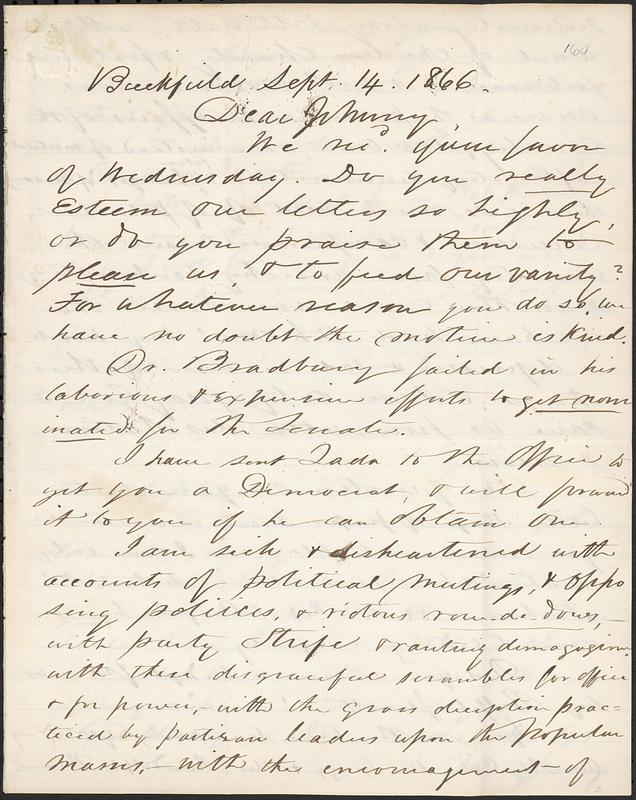 160
Buckfield Sept. 14. 1866.
Dear Johnny
We rec'd. your favor
of Wednesday. Do you really
Esteem our letters so highly,
or do you praise them to
please us, & to feed our vanity?
For whatever reason you do so, we
have no doubt the motive is kind.
Dr. Bradbury failed in his
laborious & expensive efforts to get nom
inated for the Senate.
I have sent Zada to the Office to
get you a Democrat, & will forward
it to you if he can obtain one.
I am sick & disheartened with
accounts of political meetings, & oppo
sing politics, & riotous row-de-dows,—
with party Strife & ranting demagogism,
with these disgraceful scrambles for office
& for power,— with the gross deception prac=
ticed by partizan leaders upon the popular
masses,— with the encouragement of